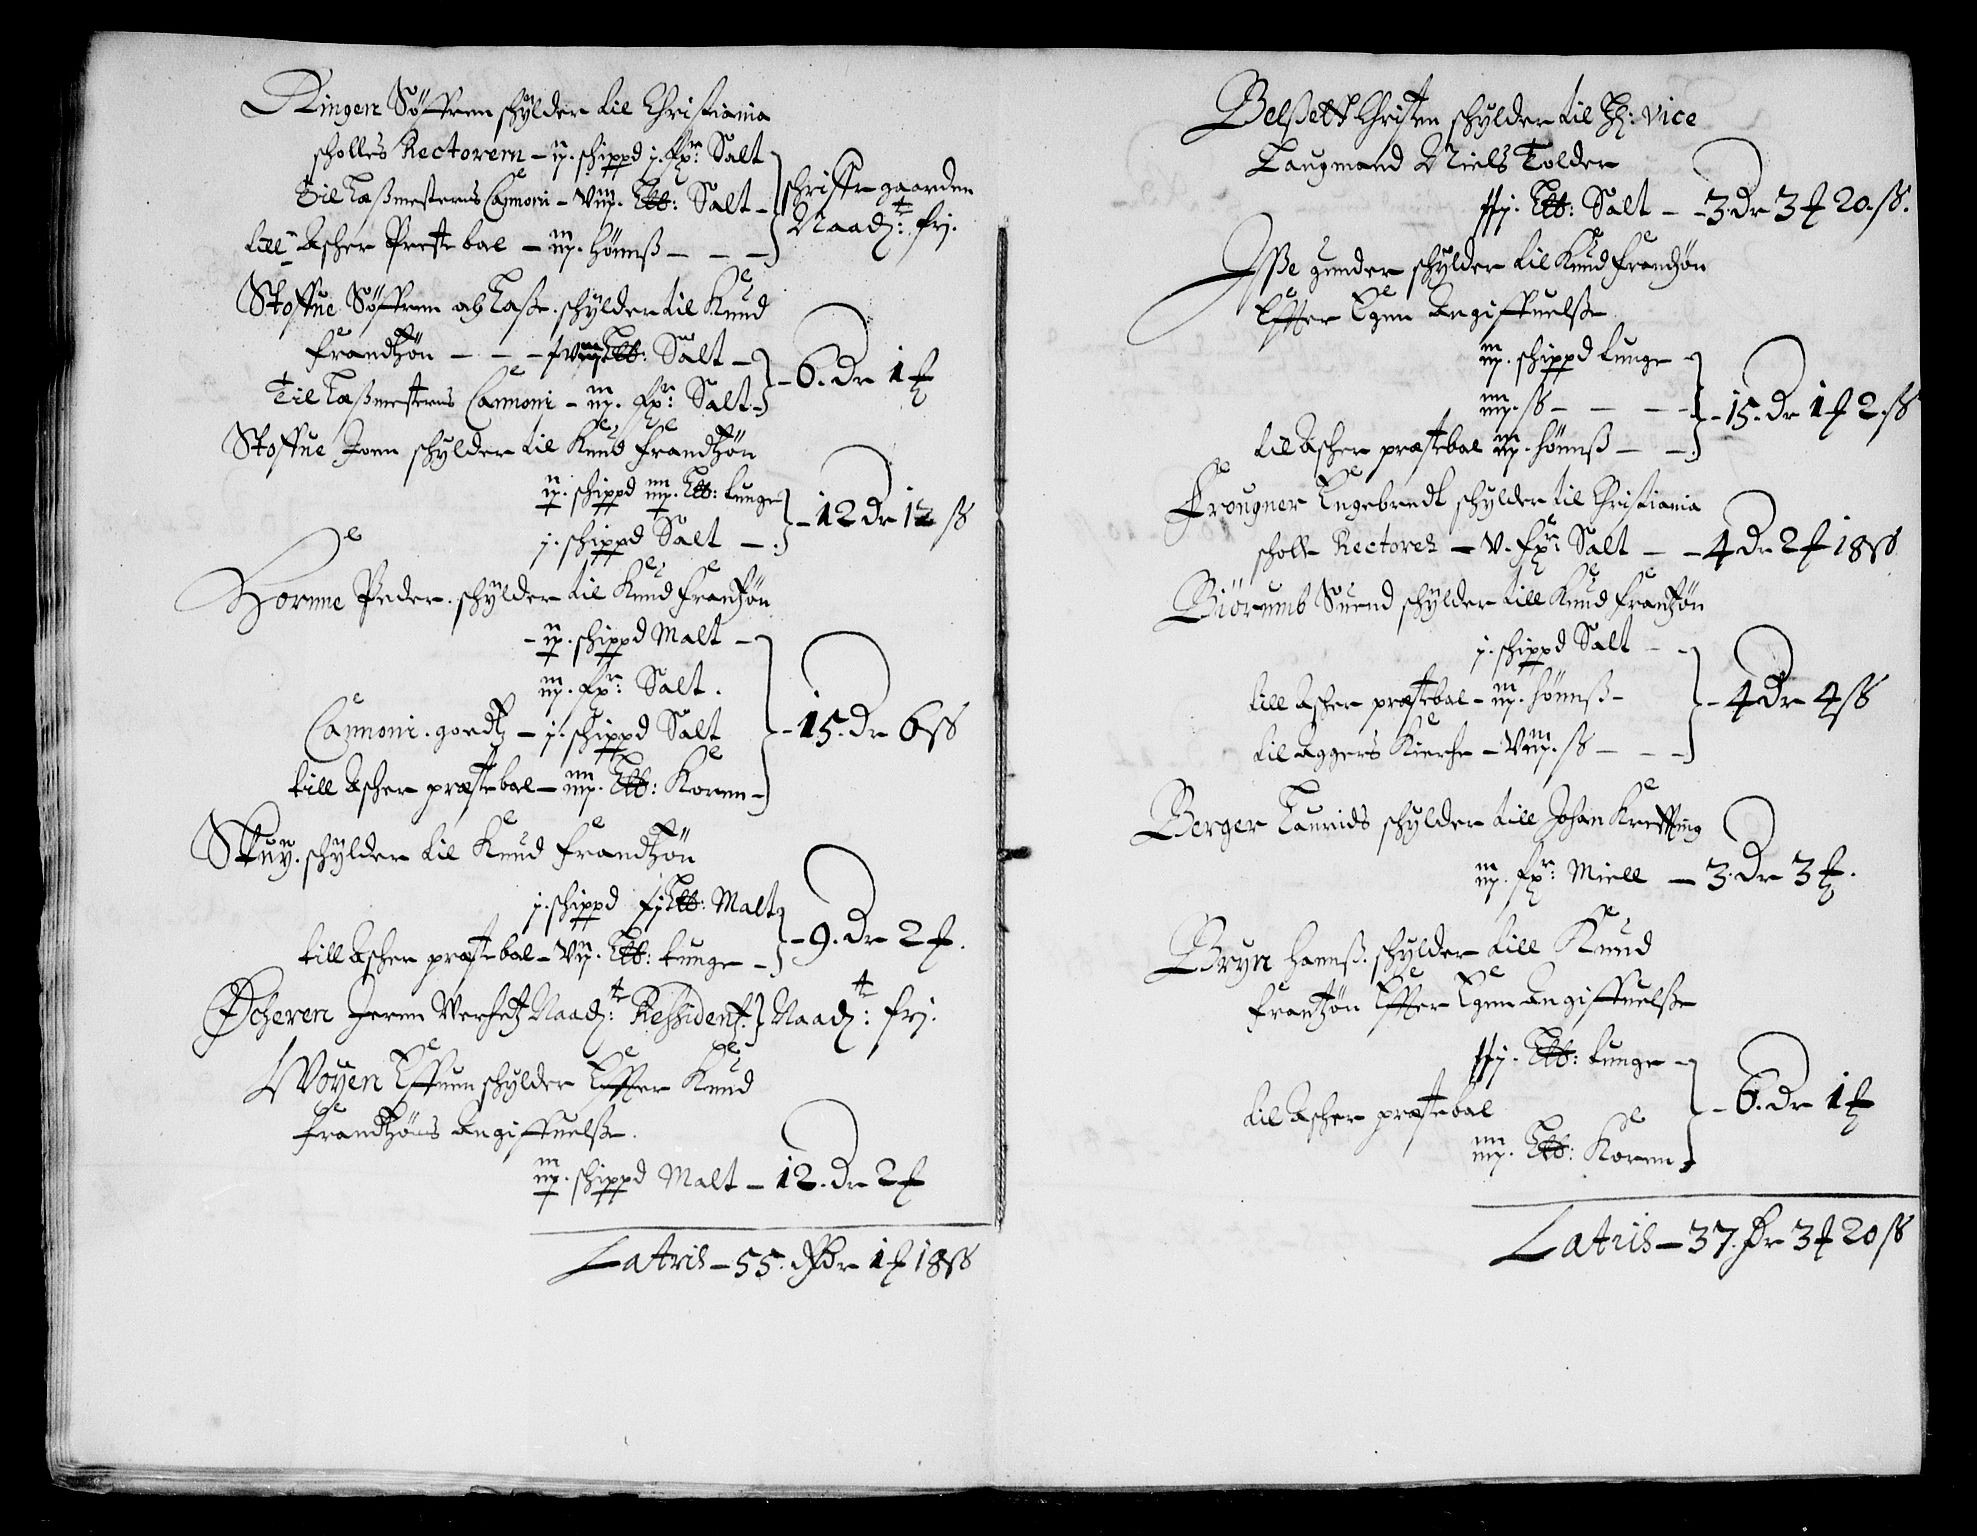 Ringen Söffren schylder til Christiania
scholles Rectorem – ij. schippd j. fpr: Salt
Til Læßmesterns Cannoni – Viij. Lb: Salt –
till Ascher Preste bol – iij. hönnß – – –
schriffr gaarden
Naadt: frj.
Stoffue Söffren och Laße. schylder til Knud
frandtzön – – – Lb: Salt –
Til Læßmesterns Cannoni – iij. fpr: Salt –
– 6. Dr 1 f
Stoffue Joen schylder til Knud frandtzön
ij. schippd iiij. Lb: tunge
j. schippd Salt –
– 12 Dr 12 ß
Hornne Peder. schylder til Knud frantzön
– ij. schippd Malt –
iij. fpr: Salt.
Cannoni. goedtz – j. schippd Salt
till Ascher præste bol – iiij. Lb: Koren –
– 15. Dr 6 ß
Skuy. schylder til Knud frandtzön
j. schippd Lb: Malt
till Ascher præste bol – Vij. Lb: tunge –
– 9. Dr 2 f.
Öcheren Jrenn Naadt: Ressident. Naadt: frj.
Woyen Effuen schylder Effter Knud
frandtzöns Angiffuelße.
iij. schippd Malt – 12. Dr 2 f
Latris – 55. Dr 1 f 18 ß
Belßett Christen schylder til H: Vice
Laugmand Niels Tolder
Lb: Salt – – 3. Dr 3 f 20. ß.
Jße gunder schylder til Knud frandzön
Effter Egen Angiffuelße
iij. schippd tunge –
iiij. ß – – – –
til Ascher præstebol iij. hönnß – –
– 15. Dr 1 f 2. ß
Frougner Engebredt schylder til Christiania
scholle Rectorer – V. fpr: Salt – – 4 Dr 2 f 18 ß
Biörumb Suend schylder till Knud frantzön
j. schippd Salt – –
till Ascher præstebol – iij. hönnß –
til Aggers Kierche – Viij. ß – – –
– 4 Dr 4 ß
Berger Laurids schylder till Johan Kretting
iij. fpr: Miell – 3. Dr 3 f.
Bryn hannß. schylder till Knud
frantzön Effter Egen Angiffuelße
Lb: tunge –
til Ascher præstebol
iiij. Lb: Koren
– 6. Dr 1 f
Latus – 37. Dr 3 f 20 ß